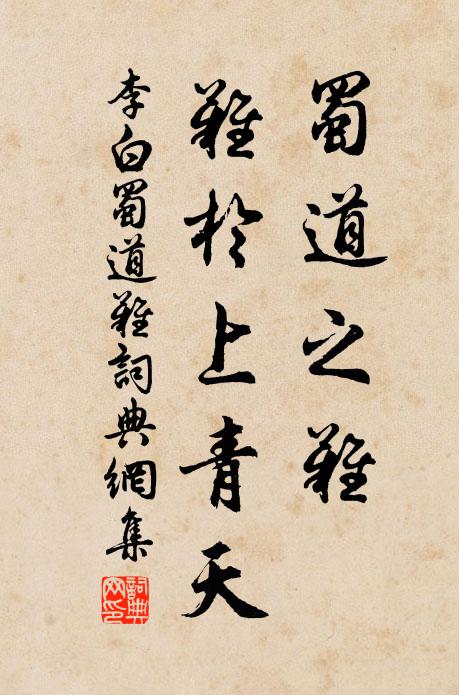 蜀道之難
難於上青天
李白蜀道難詞典網集
詞典網印